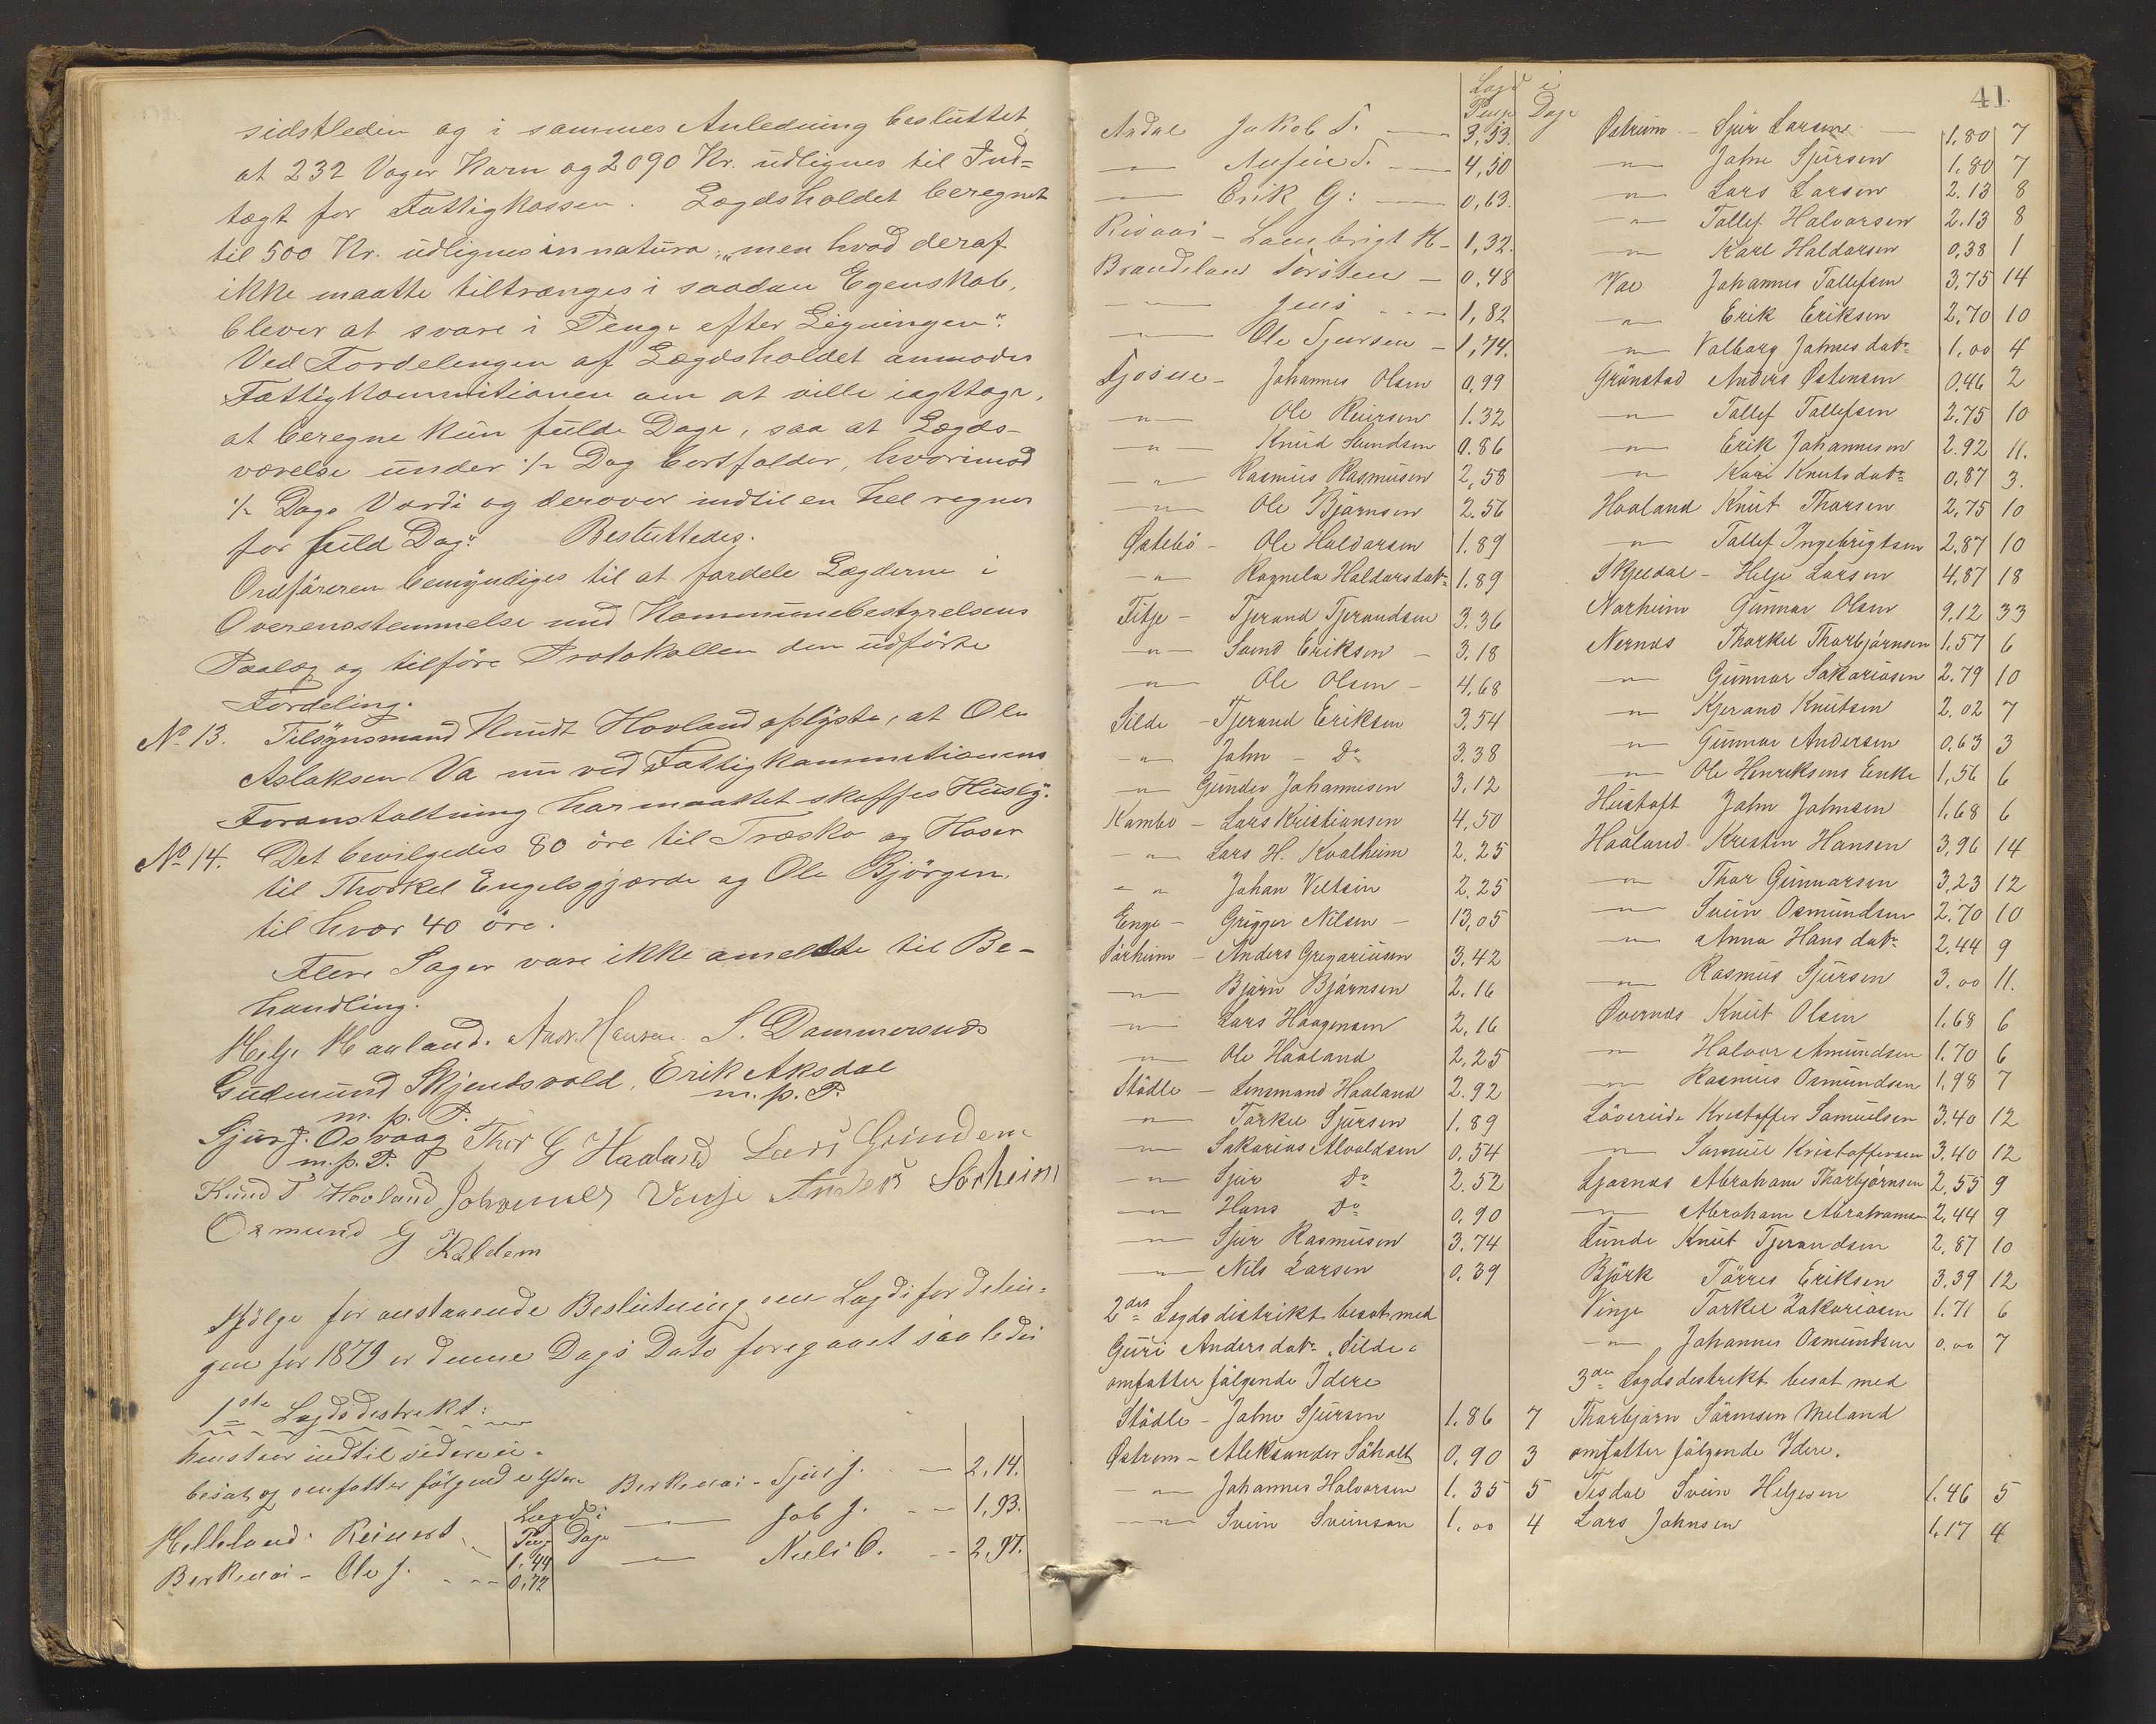 sidstleden og i sammes Anledning besluttet
at 232 Voger Korn og 2090 Kr. udlignes til Ind=
tægt for Fattigkassen. Lægdsholdet beregnet
til 500 Kr. udlignes in natura, „men hvad deraf
ikke maatte tiltrænges i saadan Egenskab,
blever at svare i Penge efter Ligningen“.
Ved Fordelingen af Lægdsholdet anmodes
Fattigkommitionen om at ville iagttage,
at beregne kun fulde Dage, saa at Lægds-
værelse under ½ Dag bortfalder, hvorimod
½ Dags Værdi og derover indtil en hel regnes
for fuld Dag“. Besluttedes.
Ordføreren bemyndiges til at fordele Lægderne i
Overensstemmelse med Kommunebestyrelsens
Paalæg og tilføre Protokollen den udførte
Fordeling.
No 13. Tilsynsmand Knudt Hovland oplyste, at Ole
Aslaksen Va nu ved Fattigkommitionens
Foranstaltning har maattet skaffes Husly.
No 14. Det bevilgedes 80 øre til Træsko og Hoser
til Thorkel Engelsgjærde og Ole Bjørgen,
til hver 40 øre.
Flere Sager vare ikke anmeldte til Be-
handling.
Helje Haaland. Andr. Hansen. S. Dommersnes
Gudmund Skjensvold, Erik Aksdal
m. p. P. m. p. P.
Sjur J. Osvaag Thor G Haaland Lars Grindem
m. p. P.
Knud T Hovland Johannes Vinje Anders Sörheim
Osmund G Kaldem
Ifølge for anstaaende Beslutning om Lægdsfordelin=
gen for 1879 er denne Dags Dato foregaaet saaledes
1ste Lægdsdestrekt:
henstaar indtil videre u-
besat og omfatter følgende Ydere
Lægd i
Peng Dage
Helleland Reinert 1,44
Berkenæs - Ole J. 0,72
Berkenæs - Sjur J. 2,14.
— Job J. 1,93.
— Niels O. 2,97.
41.
Lægd i
Penge Dage
Aadal Jakob T. 3,53.
— T. 4,50
— Erik G: 0,63.
H - 1,32.
Torsten - 0,48
— Jens 1,82
— Ole Sjursen - 1,74.
Johannes Olsen 0,99
-"- Ole Reiersen 1.32
-"- Knud 0.86
-"- Rasmus Rasmusen 2,58
-"- Ole Bjørnsen 2.56
Østebø - Ole Haldorsen 1.89
-"- Ragnela Haldorsdatr 1.89
Fitje - Tjerand Tjerandsen 3.36
-"- Svend Eriksen - 3.18
-"- Ole Olsen - 4,68
Silde - Tjerand Eriksen 3,54
-"- John - Do 3.38
-"- Gunder Johannisen 3.12
Kambo - Lars Kristiansen 4,50
-"- Lars H. Kvalheim 2,25
-"- Johan Veltzin 2,25
Enge - Grigger Nilsen - 13,05
Sörheim - Anders Gregariusen 3.42
-"- Bjørn Bjørnsen 2.16
-"- Lars Haagensen 2,16
-"- Ole Haaland 2,25
Stødle - Lensmand Haaland 2.92
-"- Torkel Sjursen 1.89
-"- Sakarias Alvaldsen 0,54
-"- Sjur Do 2.52
-"- Hans Do 0,90
-"- Sjur Rasmusen 3.74
-"- Nils Larsen 0.39
2det Lægdsdistrikt besat med
Guri Andersdatr. Silde
omfatter følgende Ydere
Stødle - Johne Sjursen 1.86 7
Østrem - Aleksander Söholt 0,90 3
-"- Johannes Halvorsen 1.35 5
-"- Svein Sveinson 1.00 4
Østrem - Sjur Larsen 1.80 7
-"- Johne Sjursen 1.80 7
-"- Lars Larsen 2.13 8
-"- Tollef Halvorsen 2.13 8
-"- Karl Haldorsen 0,38 1
Vae Johannes Tollefsen 3,75 14
-"- Erik Eriksen 2,70 10
-"- Valborg Johnes datr 1.00 4
Grönstad Anders Østensen 0,46 2
-"- Tollef Tollefsen 2,75 10
-"- Erik Johannesen 2.92 11.
-"- Kari Knuts datr 0,87 3.
Haaland Knut Thorsen 2,75 10
-"- Tollef Ingebrigtsen 2,87 10
Skjeldal - Helje Larsen 4,87 18
Norheim Gunnar Olsen 9,12 33
Nernes Thorkel Thorbjørnsen 1.57 6
-"- Gunnar Sakariasen 2.79 10
-"- Kjerand Knutsen 2,02 7
-"- Gunnar Andersen 0,63 3
-"- Ole Henriksens Enke 1,56 6
Hustoft John Johnsen 1.68 6
Haaland Kristen Hansen 3,96 14
-"- Thor Gunnarsen 3,23 12
-"- Svein Osmundsen 2,70 10
-"- Anna Hans datr 2,44 9
-"- Rasmus Sjursen 3.00 11.
Øvernes Knut Olsen 1.68 6
-"- Halvor Amundsen 1.70 6
-"- Rasmus Osmundsen 1,98 7
Løvereide Kristoffer Samuelsen 3.40 12
-"- Samuel Kristoffersen 3.40 12
Ljosnes Abraham Thorbjørnsen 2,55 9
-"- Abraham Abrahamsen 2,44 9
Lunde Knut Tjerandsen 2,87 10
Björk Tørres Eriksen 3.39 12
Vinje Torkel Zakariasen 1.71 6
-"- Johannes Osmundsen 0.00 7
3die Lægdsdestrekt besat med
Thorbjørn Sørensen Meland
omfatter følgende Ydere.
Tesdal Svein Heljesen 1.46 5
Lars Johnsen 1.17 4